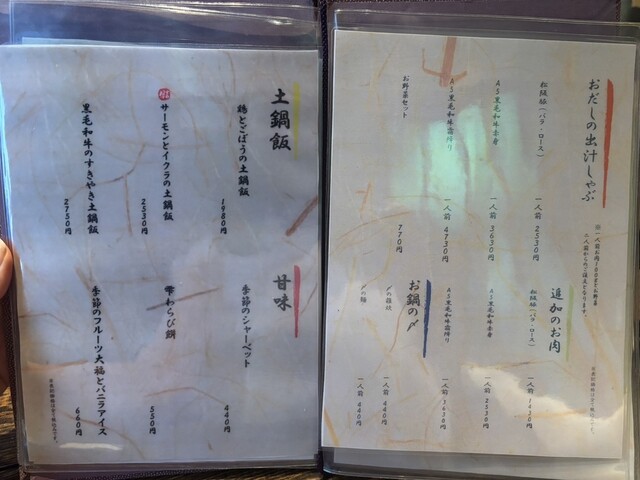 おだしの出汁しゃぶ
松阪豬（バラ・ロース）
一人前 2530円
A5黒毛和牛赤身
一人前 3630円
A5黒毛和牛霜降り
一人前 4730円
お野菜セット
770円
追加のお肉
松阪豬（バラ・ロース）
A5黒毛和牛赤身
一人前 2530円
A5黒毛和牛霜降り
一人前 3630円
お鍋の〆
〆の雑炊
一人前 440円
〆の麺
一人前 440円
土鍋飯
鶏とごぼうの土鍋飯
1980円
サーモンとイクラの土鍋飯
2530円
黒毛和牛のすきやき土鍋飯
2750円
甘味
季節のシャーベット
440円
雫わらび餅
550円
季節のフルーツ大福とバニラアイス
660円